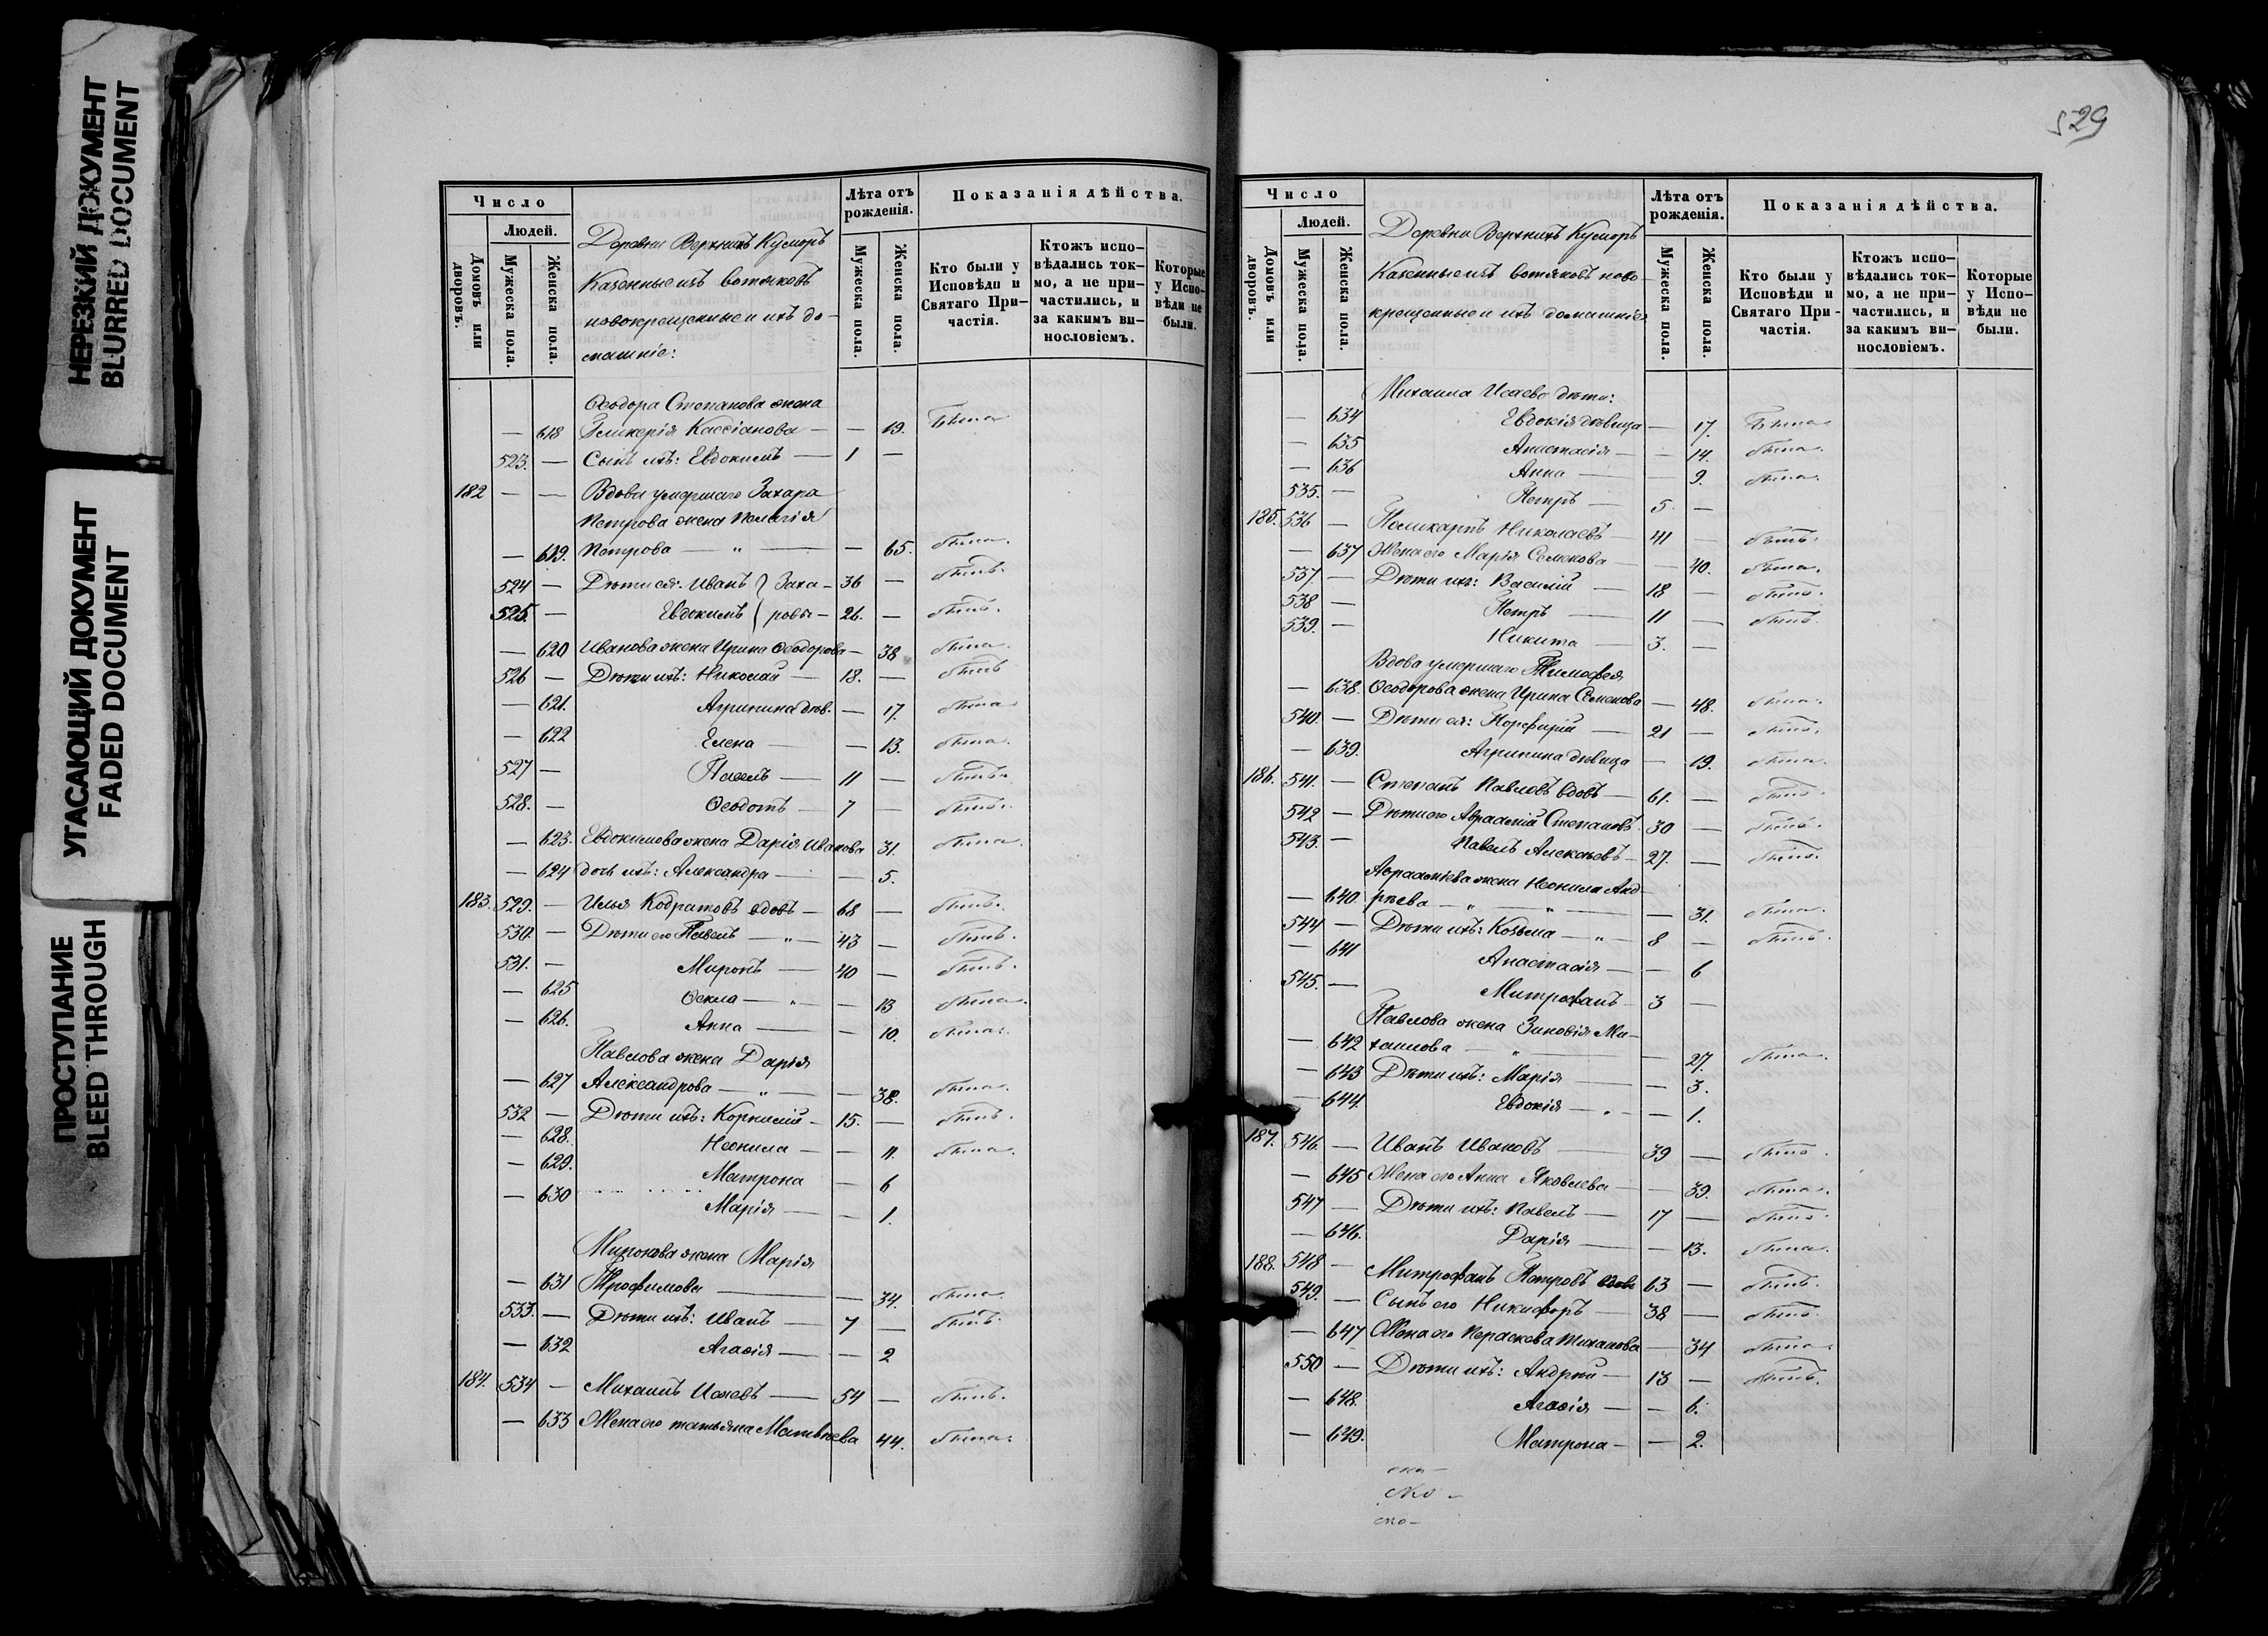 НЕРЕЗКИЙ ДОКУМЕНТ
BLURRED DOCUMENT
УГАСАЮЩИЙ ДОКУМЕНТ
FADED DOCUMENT
ПРОСТУПАНИЕ
BLEED THROUGH
Число
Людей.
Домовъ или дворовъ.
Мужеска пола.
Женска пола.
Деревни Верхнихъ Кумаръ
Казенные изъ вотяковъ
новокрещенные и ихъ до-
машніе:
Лѣта отъ рожденія.
Мужеска пола.
Женска пола.
Показанія дѣйства.
Кто были у Исповѣди и Святаго Причастія.
Ктожъ исповѣдались токмо, а не причастились, и за какимъ винословіемъ.
Которые у Исповѣди не были.
Ѳеодора Степанова жена
— 618 Гликерія Кассіанова — — 19. Была
523. — Сынъ ихъ: Евдокимъ — 1 —
182 — — Вдова умершаго Захара
Петрова жена Пелагія
— 619. Петрова — " — — 65. была.
524 — Дѣти ея: Иванъ } Заха- 36 — былъ.
525. — Евдокимъ } ровы — 26. — былъ.
— 620 Иванова жена Ирина Ѳеодорова — 38 была.
526 — Дѣти ихъ: Николай — 18. — былъ
— 621. Агрипина дѣв. — 17. была
— 622 Елена — — 13. была.
527 — Павелъ — 11 — былъ
528. — Ѳеодотъ — 7 — былъ.
— 623. Евдокимова жена Дарія Иванова 31. была.
— 624 дочь ихъ: Александра — — 5.
183. 529. — Илья Кодратовъ вдовъ — 68 — былъ.
530. — Дѣти его Павелъ — " — 43 — былъ.
531. — Миронъ — 40 — былъ.
— 625 Ѳекла — " — — 13 была.
— 626. Анна — — 10. была.
Павлова жена Дарія
— 627 Александрова — " — — 38. была.
532 — Дѣти ихъ: Корнилій — 15. — былъ.
— 628. Неонила — — 11. была.
— 629. Матрона — 6
— 630 Марія — — 1.
Миронова жена Марія
— 631 Трофимова — — 34. была
533. — Дѣти ихъ: Иванъ — 7 — былъ.
— 632 Агафія — — 2
184. 534 — Михаилъ Исаевъ — 54 — былъ.
— 633 Жена его татьяна Матвѣева 44. была.
529
Число
Людей.
Домовъ или дворовъ.
Мужеска пола.
Женска пола.
Деревни Верхнихъ Кумаръ
Казенные изъ вотяковъ ново-
крещенные и ихъ домашніе
Лѣта отъ рожденія.
Мужеска пола.
Женска пола.
Показанія дѣйства.
Кто были у Исповѣди и Святаго Причастія.
Ктожъ исповѣдались токмо, а не причастились, и за какимъ винословіемъ.
Которые у Исповѣди не были.
Михаила Исаева дѣти:
— 634 Евдокія дѣвица — 17. Была
— 635 Анастасія — — 14. была.
— 636 Анна — — 9. была.
535. — Петръ — 5. —
185. 536 — Поликарпъ Николаевъ — 41 — былъ.
— 637 Жена его Марія Семенова — — 40. была.
537. — Дѣти ихъ: Василій — 18 — былъ.
538 — Петръ — 11 — былъ.
539. — Никита — 3. —
Вдова умершаго Тимофея
— 638. Ѳеодорова жена Ирина Семенова — 48. была.
540. — Дѣти ея: Порфирій — 21 — былъ.
— 639. Агрипина дѣвица — 19. была.
186. 541. — Степанъ Павловъ вдовъ — 61. — былъ.
542 — Дѣти его Авраамій Степановъ. 30 — былъ.
543. — Павелъ Алексѣевъ — 27. — былъ.
Авраамиева жена Неонила Анд-
— 640. рѣева — " — " — — 31. была.
544 — Дѣти ихъ: Козьма — " — 8 — былъ.
— 641 Анастасія — — 6
545. — Митрофанъ — 3 —
Павлова жена Зиновія Ми-
— 642 хаилова — " — — 27. была.
— 643 Дѣти ихъ: Марія — — 3.
— 644. Евдокія — " — — 1.
187. 546. — Иванъ Ивановъ — 39 — былъ.
— 645 Жена его Анна Яковлева — — 39. была.
547 — Дѣти ихъ: Павелъ — 17 — былъ.
— 646. Дарія — — 13. была.
188. 548 — Митрофанъ Петровъ вдовъ 63 — былъ.
549. — Сынъ его Никифоръ — 38 — былъ.
— 647 Жена его Параскева — 34 была.
550 — Дѣти ихъ: Андрей — 13 — былъ.
— 648. Агафія — — 6.
— 649. Матрона — — 2.